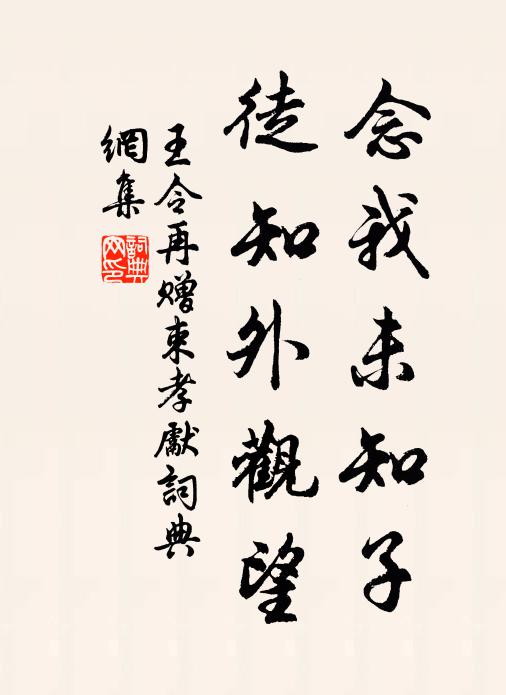 念我未知子
徒知外觀望
王令再贈束孝獻詞典
網集
詞典
网印